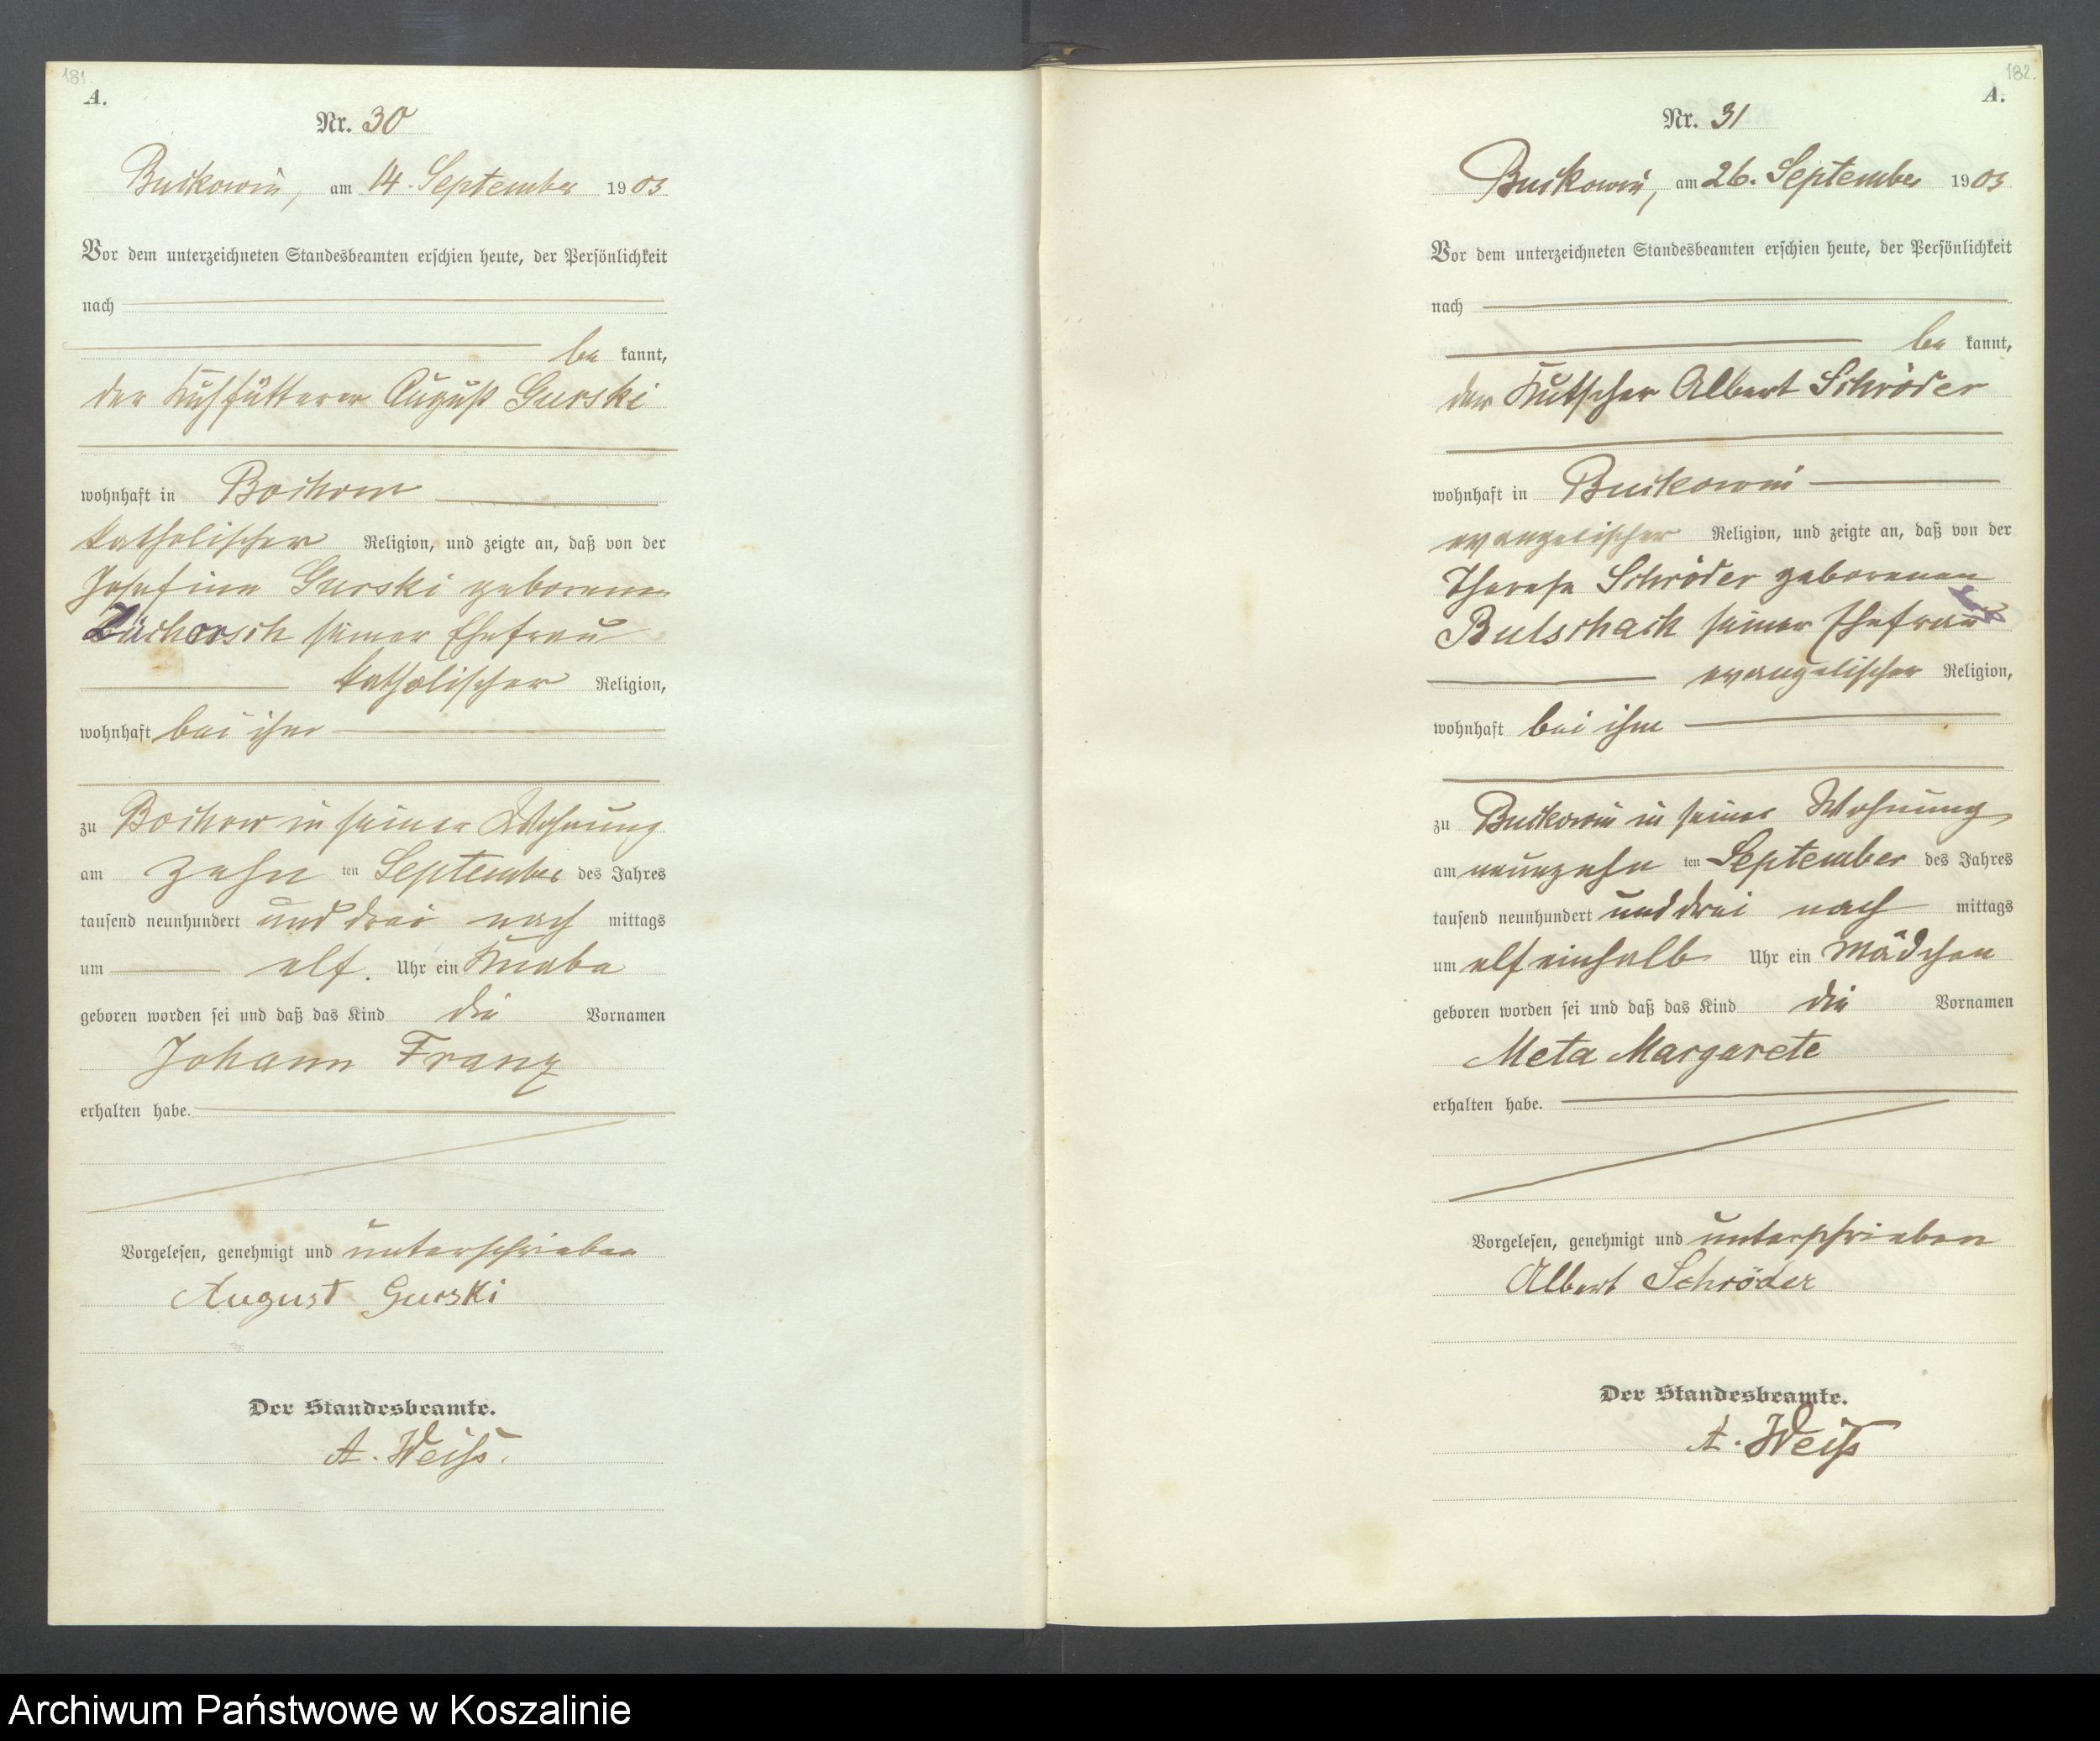 181.
A.
Nr. 30
Buckowin, am 14. September 1903
Vor dem unterzeichneten Standesbeamten erschien heute, der Persönlichkeit
nach
be kannt,
der Kuhfütterer August Gurski
wohnhaft in Bochow
katholischer Religion, und zeigte an, daß von der
Josefine Gurski geborenen
seiner Ehefrau
katholischer Religion,
wohnhaft bei ihm
zu Bochow in seiner Wohnung
am zehn ten September des Jahres
tausend neunhundert und drei nach mittags
um elf. Uhr ein Knabe
geboren worden sei und daß das Kind die Vornamen
Johann Franz
erhalten habe.
Vorgelesen, genehmigt und unterschrieben
August Gurski
Der Standesbeamte.
A. Weiß.
182.
A.
Nr. 31
Buckowin, am 26. September 1903
Vor dem unterzeichneten Standesbeamten erschien heute, der Persönlichkeit
nach
be kannt,
der Kutscher Albert Schröder
wohnhaft in Buckowin
evangelischer Religion, und zeigte an, daß von der
Therese Schröder geborenen
Bulschack seiner Ehefrau
evangelischer Religion,
wohnhaft bei ihm
zu Buckowin in seiner Wohnung
am neunzehn ten September des Jahres
tausend neunhundert und drei nach mittags
um elf einhalb Uhr ein Mädchen
geboren worden sei und daß das Kind die Vornamen
Meta Margarete
erhalten habe.
Vorgelesen, genehmigt und unterschrieben
Albert Schröder
Der Standesbeamte.
A. Weiß
Archiwum Państwowe w Koszalinie